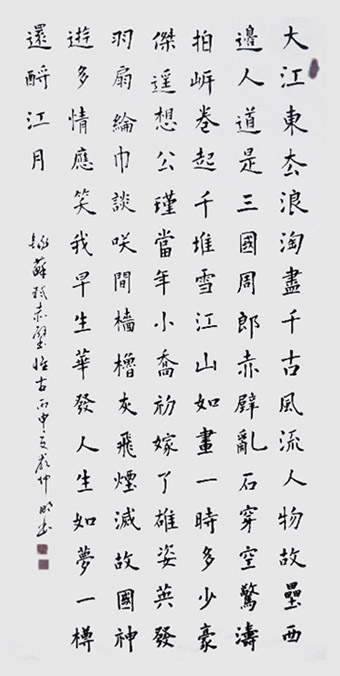 大江東去浪淘盡千古風流人物故壘西
邊人道是三國周郎赤壁亂石穿空驚濤
拍岍卷起千堆雪江山如畫一時多少豪
傑遥想公瑾當年小喬初嫁了雄姿英發
羽扇綸巾談咲間檣櫓灰飛煙滅故國神
遊多情應笑我早生華發人生如夢一樽
還酹江月
錄蘇軾赤壁懷古丙申